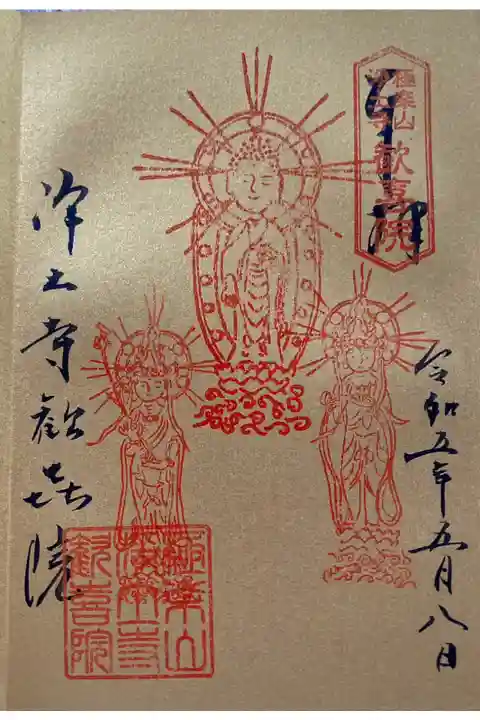 奉拝
極楽山
浄土寺
歓喜院
令和五年五月八日
浄土寺歓喜院
極楽山
浄土寺
歓喜院